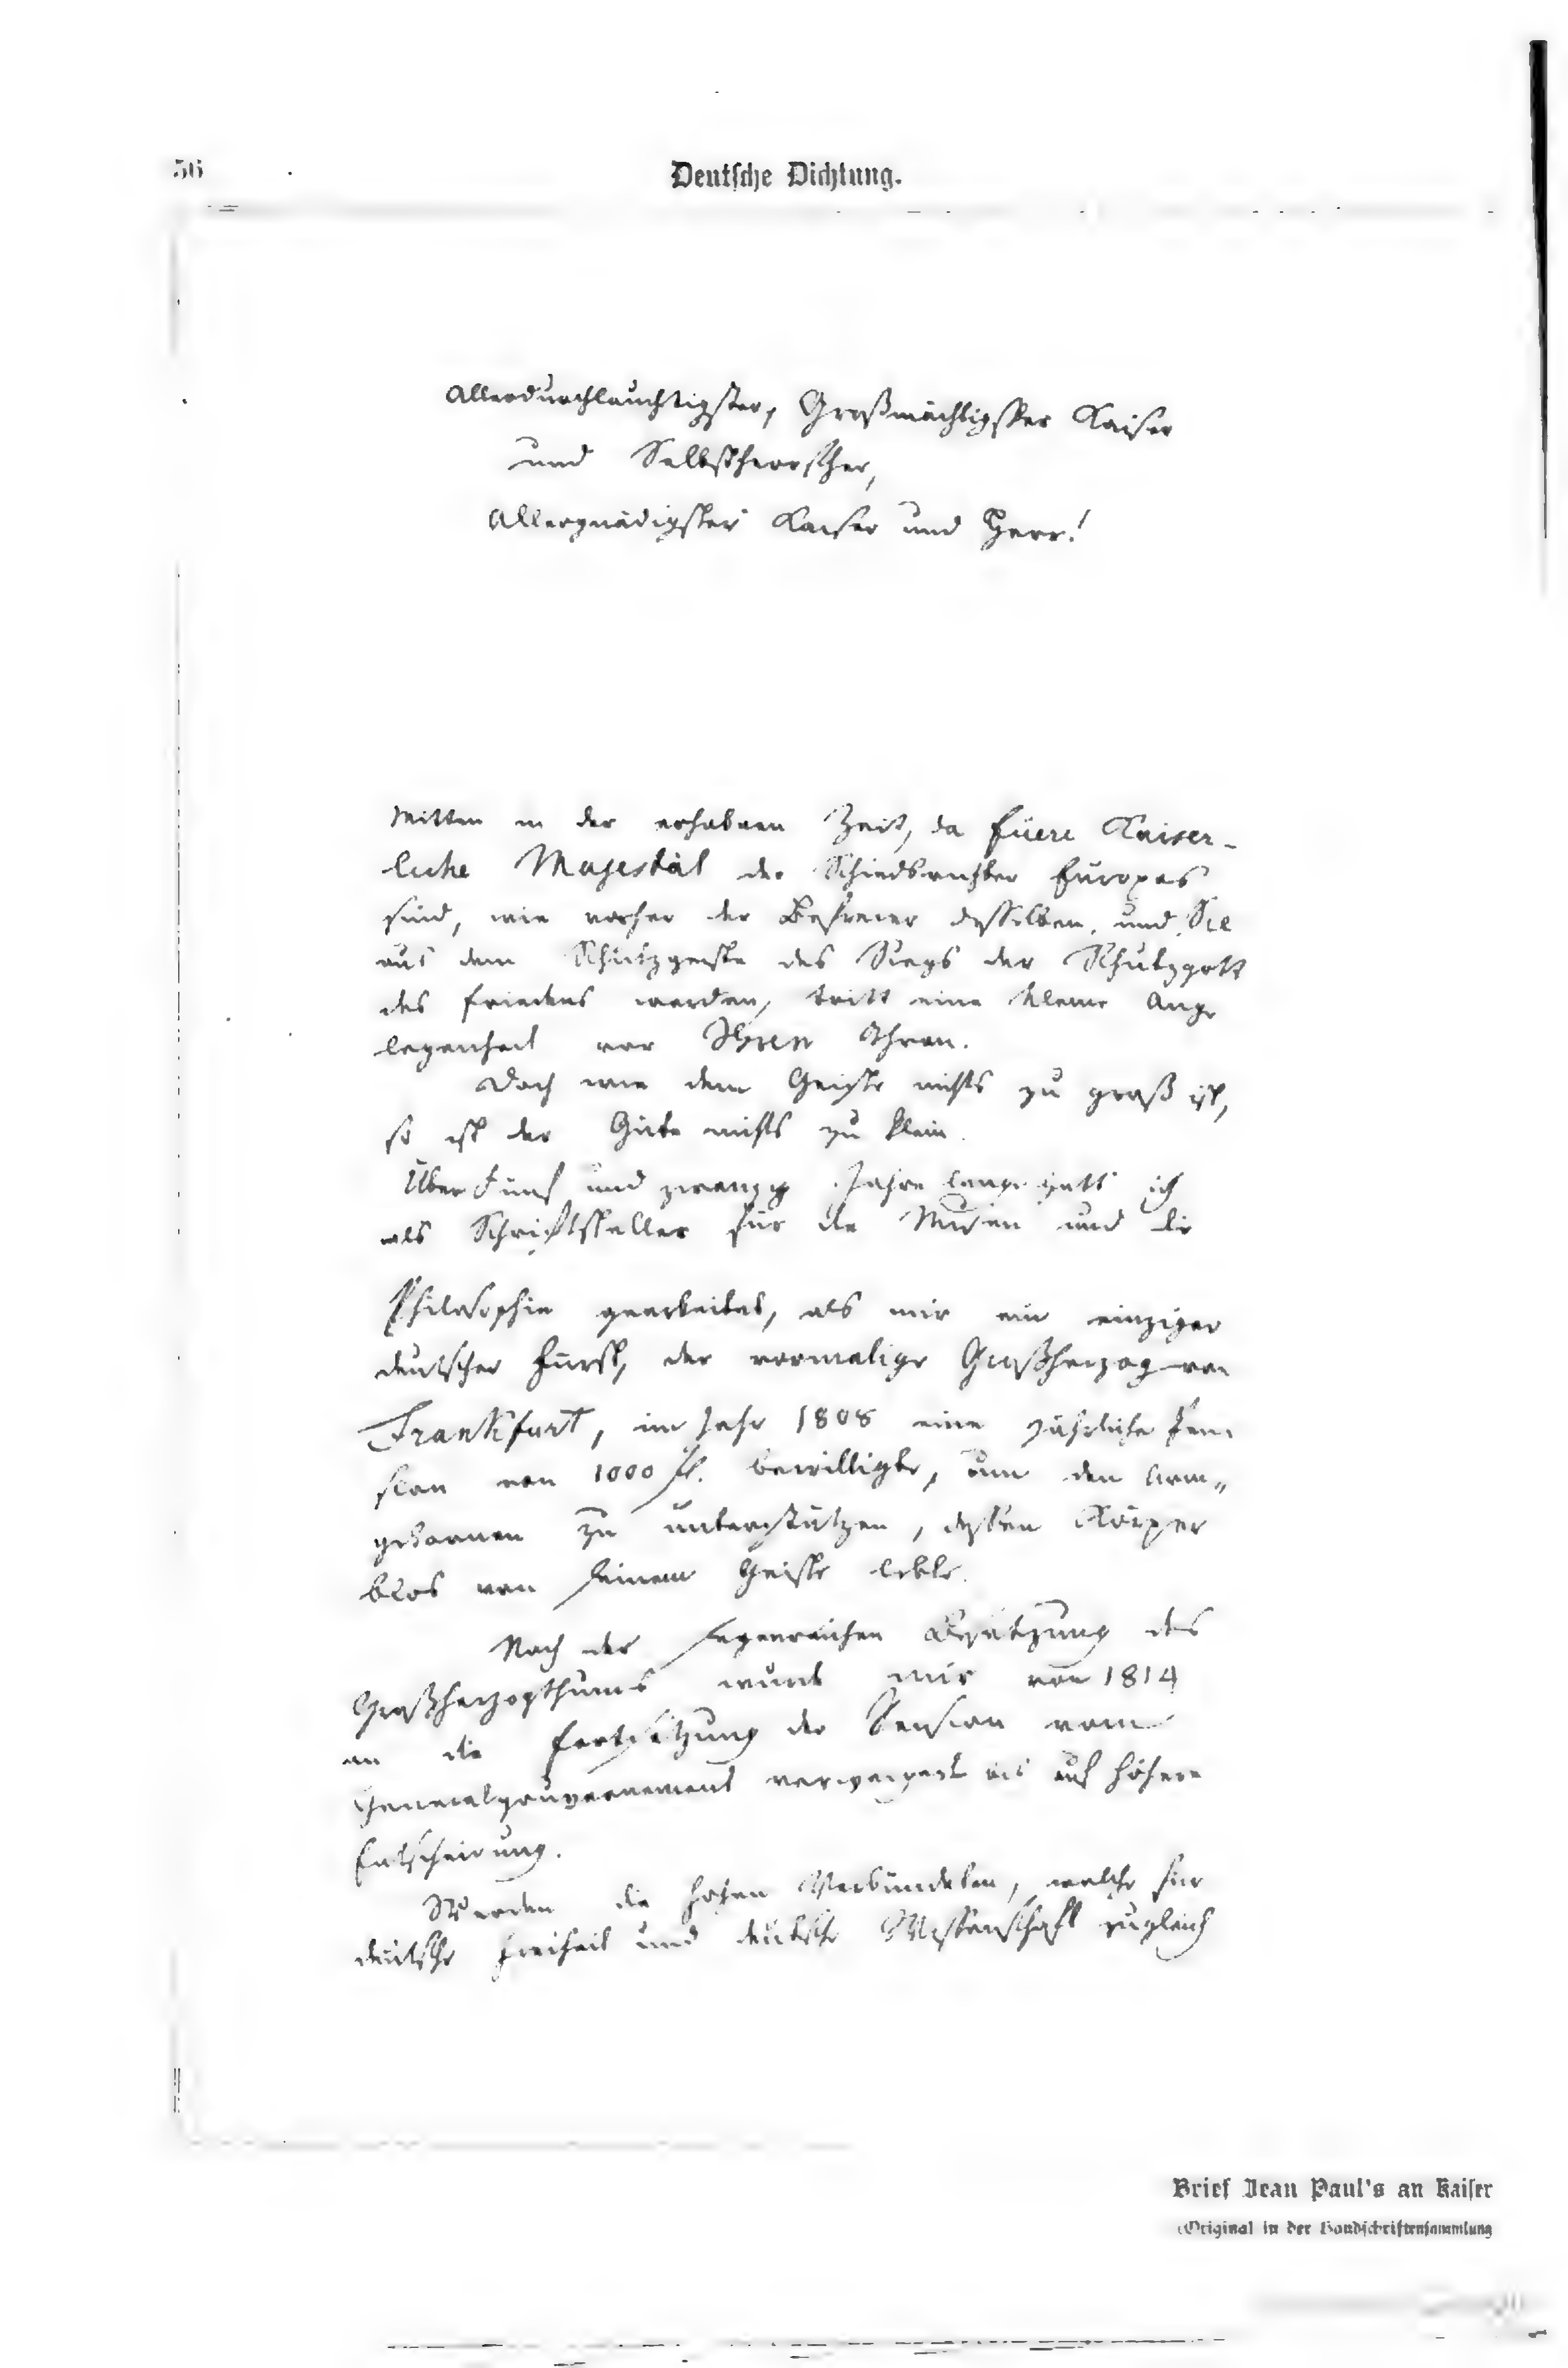 56
Deutsche Dichtung.
Allerdurchlauchtigster, Großmächtigster Kaiser
und Selbstherrscher,
Allergnädigster Kaiser und Herr!
Mitten in der erhabnen Zeit, da Euere Kaiser-
liche Majestät der Schiedsrichter Europas
sind, wie vorher der Befreier desselben, und Sie
aus dem Schutzgeiste des Siegs der Schutzgott
des Friedens werden, tritt eine kleine Ange
legenheit vor Ihren Thron.
Doch wie dem Geiste nichts zu groß ist,
so ist der Güte nichts zu klein.
Über fünf und zwanzig Jahre lange hatt' ich
als Schriftsteller für die Musen und die
Philosophie gearbeitet, als mir ein einziger
deutscher Fürst, der vormalige Großherzog von
Frankfurt, im Jahr 1808 eine jährliche Pen
sion von 1000 fl. bewilligte, um den Arm„
gebornen zu unterstützen, dessen Körper
blos von seinem Geiste lebte.
Nach der segenreichen Besetzung des
Großherzogthums wurde mir von 1814
an die Fortsetzung der Pension vom
Generalgouvernement verweigert bis auf höhere
Entscheidung.
Werden die hohen Verbündeten, welche für
deutsche Freiheit und deutsche Wissenschaft zugleich
Brief Jean Paul's an Kaiser
(Original in der Handschriftensammlung